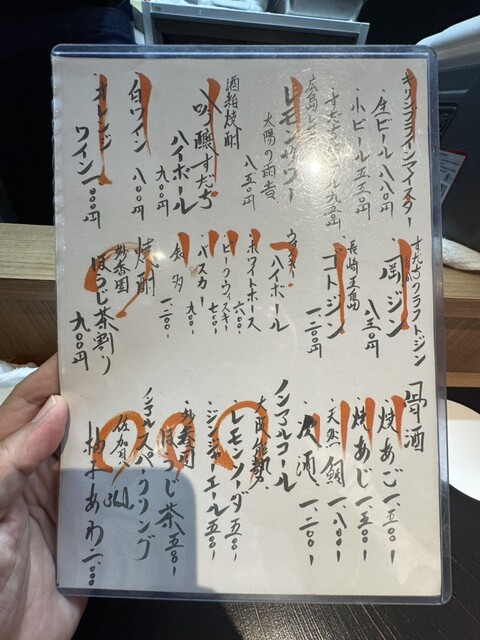 キリンブラウマイスター
・生ビール 八八〇円
・小ビール 五五〇円
すだち
広島レモン
レモンサワー
太陽の雨音
酒粕焼酎 八五〇
・吟醸すだち
ハイボール
九〇〇円
・白ワイン
・オレンジ
ワイン 一、一〇〇円
すだちクラフトジン
・岡ジン
八五〇円
長崎五島
・ゴトジン
一、二〇〇円
ウイスキー
・ハイボール
・ホワイトホース
六〇〇-
・ピークウィスキー
七五〇-
・バスカー
九〇〇-
・知多
一、二〇〇-
焼酎
妙香園
ほうじ茶割り
九〇〇円
骨酒
・焼あご 一、五〇〇-
・焼あじ 一、五〇〇-
・天然鯛 一、八〇〇-
・次酒 一、二〇〇-
ノンアルコール
大阪能勢
・レモンソーダ 五五〇-
・ジンジャエール 五五〇-
妙香園
・ほうじ茶 五五〇-
ノンアルスパークリング
佐賀
柚子あわ